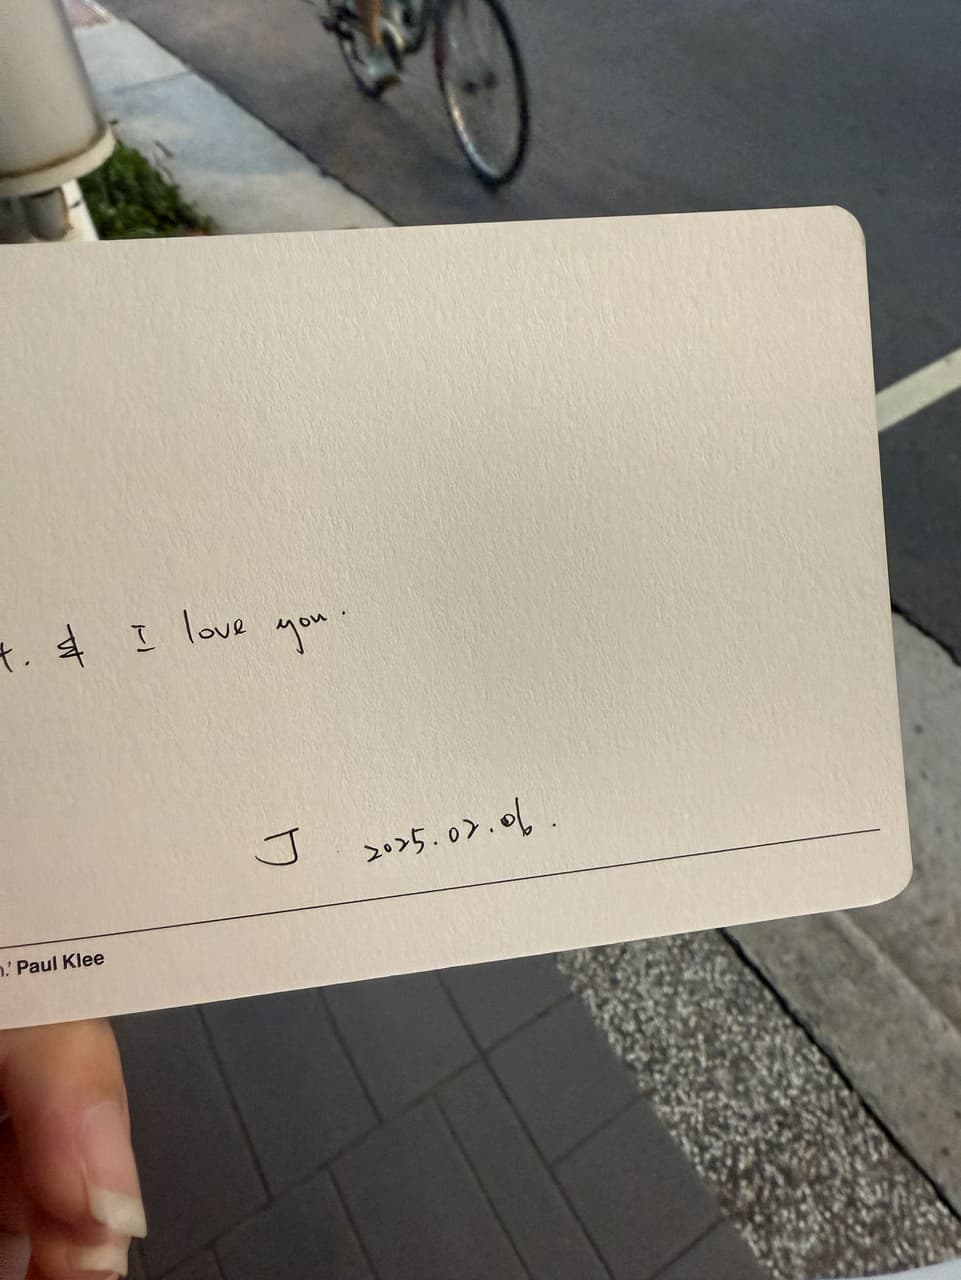 t. & I love you.
J 2025.02.06.
n.' Paul Klee